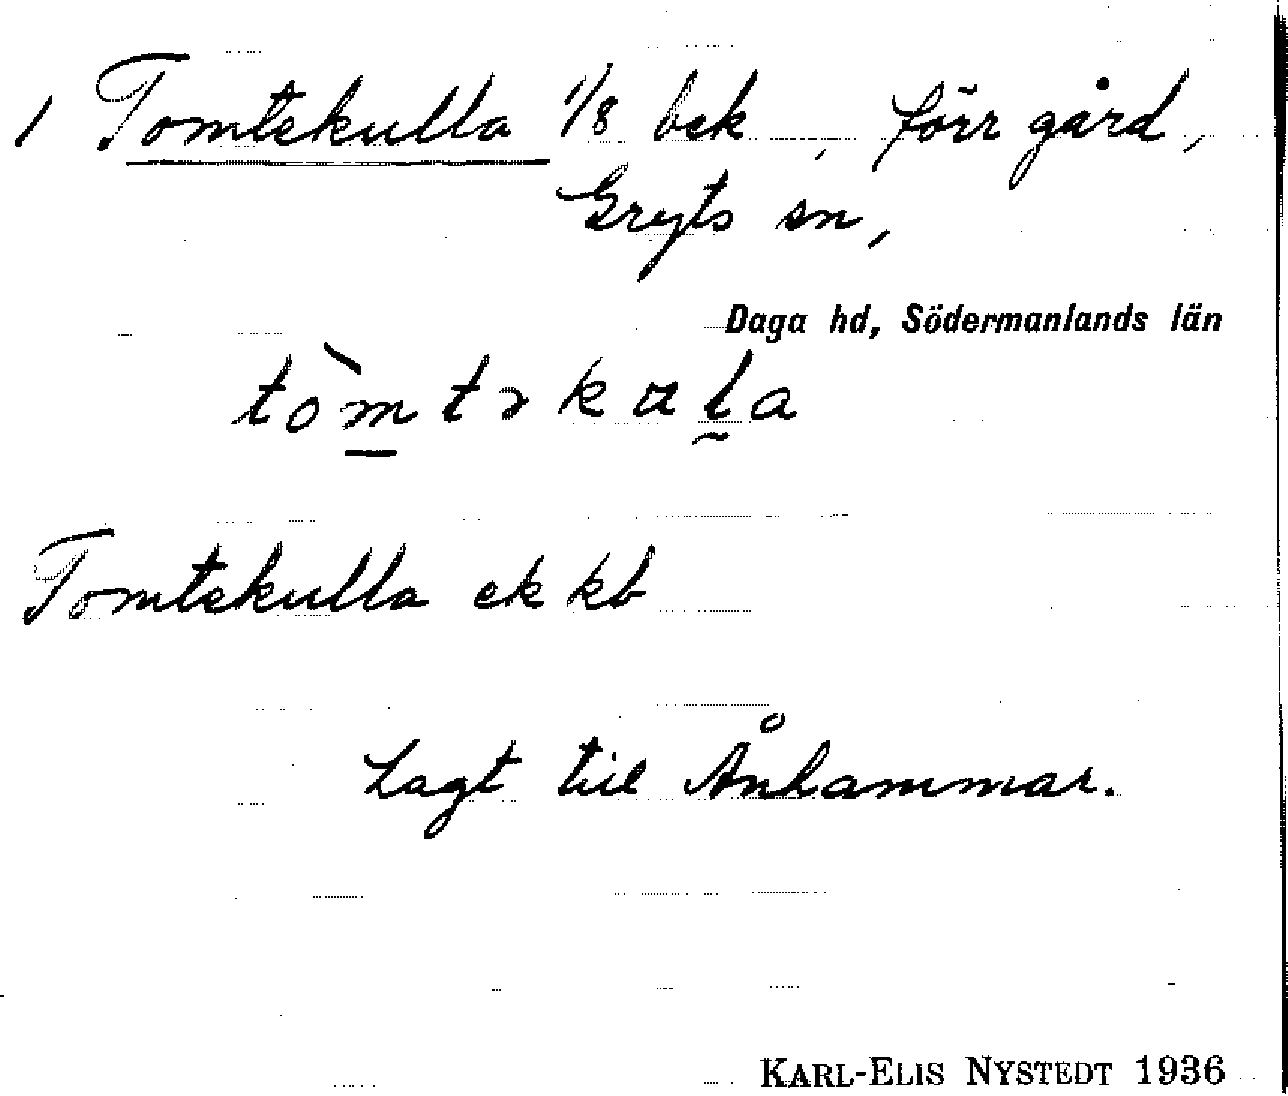 1 Tomtekulla 1/8 bek, förr gård,
Gryts sn,
Daga hd, Södermanlands län
tòm̲təkɯl̰a
Tomtekulla ek kb
Lagt till Ånhammar.
KARL-ELIS NYSTEDT 1936